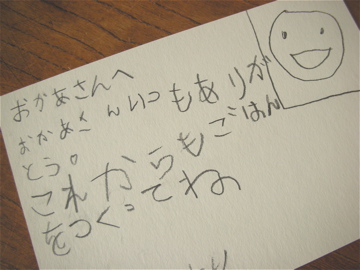 おかあさんへ
おかあさんいつもありが
とう。
これからもごはん
をつくってね